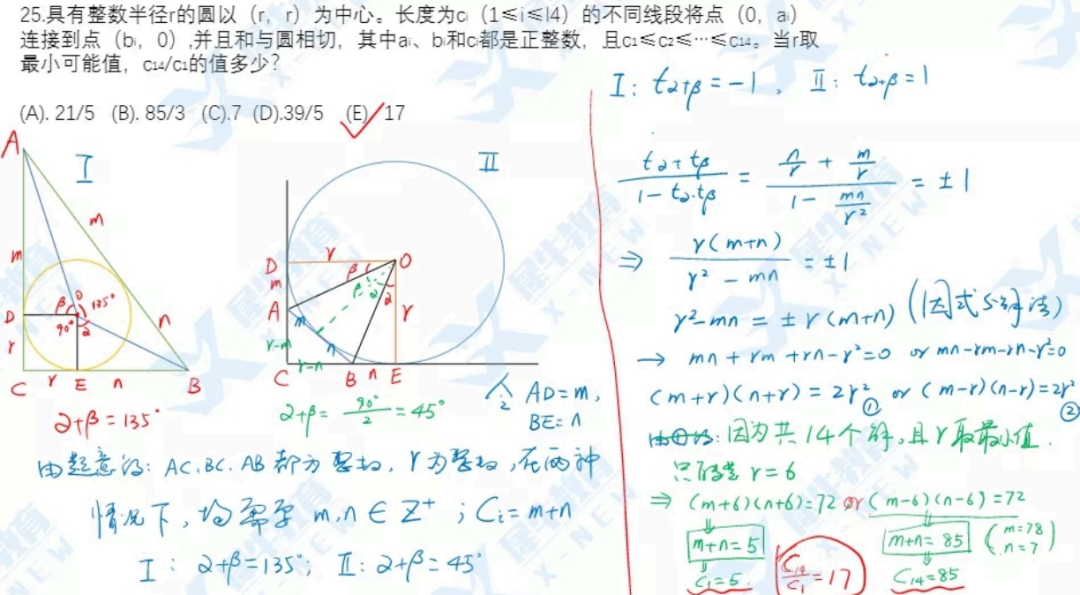 25.具有整数半径r的圆以（r，r）为中心。长度为cᵢ（1≤i≤l4）的不同线段将点（0，aᵢ）
连接到点（bᵢ，0）,并且和与圆相切，其中aᵢ、bᵢ和cᵢ都是正整数，且c₁≤c₂≤…≤c₁₄。当r取
最小可能值，c₁₄/c₁的值多少?
(A). 21/5 (B). 85/3 (C).7 (D).39/5 (E). 17
A
I
m
m
D
r
β
O
135°
90°
2
n
C
r
E
n
B
2+β=135°
II
D
r
β
O
m
A
m
β
2
2
r
r-m
n
C
r-n
B
n
E
2+β= 90°/2 =45°
令
AD=m,
BE=n
由题意得: AC.BC.AB都为整数, r为整数,在两种
情况下,均需要 m,n∈Z⁺ ; Cᵢ=m+n
I: 2+β=135°; II: 2+β=45°
I: t₂₊ᵦ=-1, II: t₂₊ᵦ=1
(t₂+tᵦ)/(1-t₂·tᵦ) = (n/r + m/r)/(1 - mn/r²) = ±1
⇒ r(m+n)/(r²-mn) = ±1
r²-mn=±r(m+n) (因式分解法)
→ mn+rm+rn-r²=0 or mn-rm-rn-r²=0
(m+r)(n+r)=2r² ① or (m-r)(n-r)=2r² ②
因为共14个解,且r取最小值.
只能是 r=6
⇒ (m+6)(n+6)=72 or (m-6)(n-6)=72
m+n=5
m+n=85
(m=78
n=7)
C₁=5.
C₁₄/C₁=17
C₁₄=85
犀牛教育
X-NEW